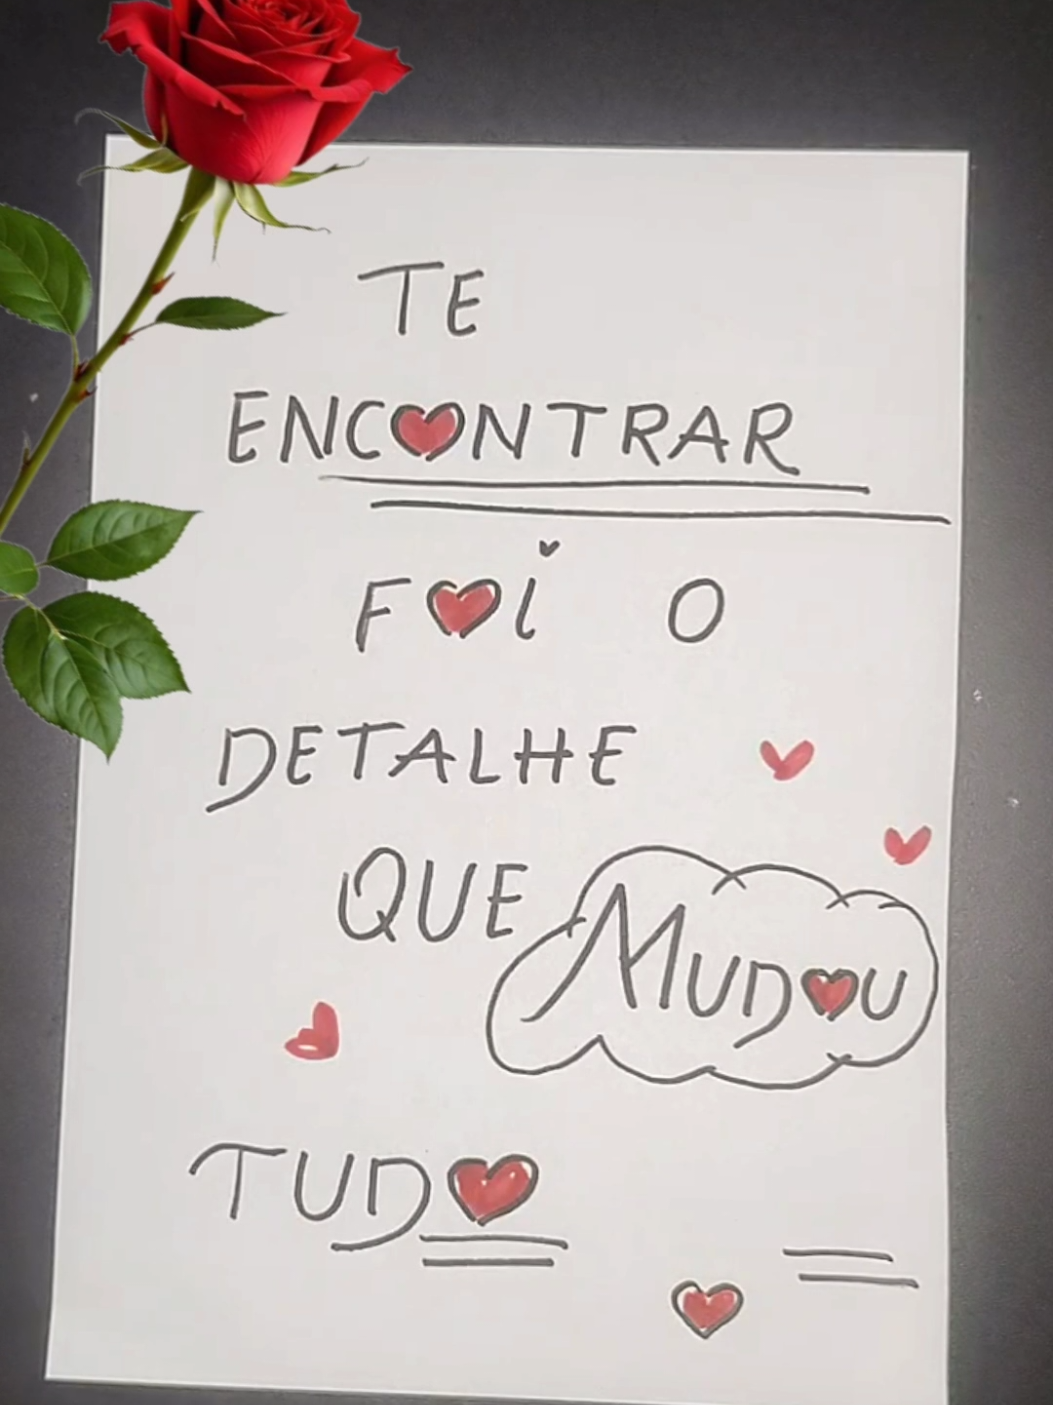 TE
ENC❤NTRAR
F❤i O
DETALHE
QUE MUD❤U
TUD❤